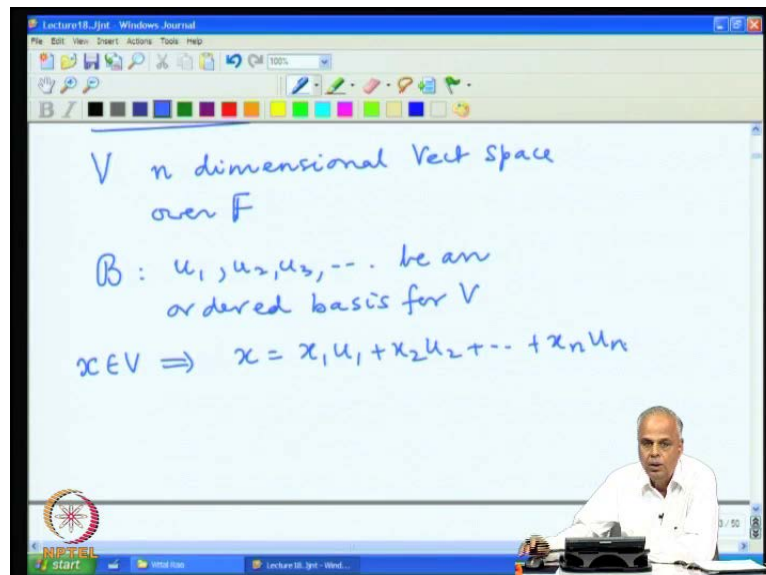 Lecture18.Jjnt - Windows Journal
File Edit View Insert Actions Tools Help
100%
B I
V n dimensional Vect space
over F
B : u₁, u₂, u₃, --- . be an
ordered basis for V
x ∈ V ⟹ x = x₁u₁ + x₂u₂ + --- + xₙuₙ
3 / 50
NPTEL
start
Vittal Rao
Lecture18.Jjnt - Wind...